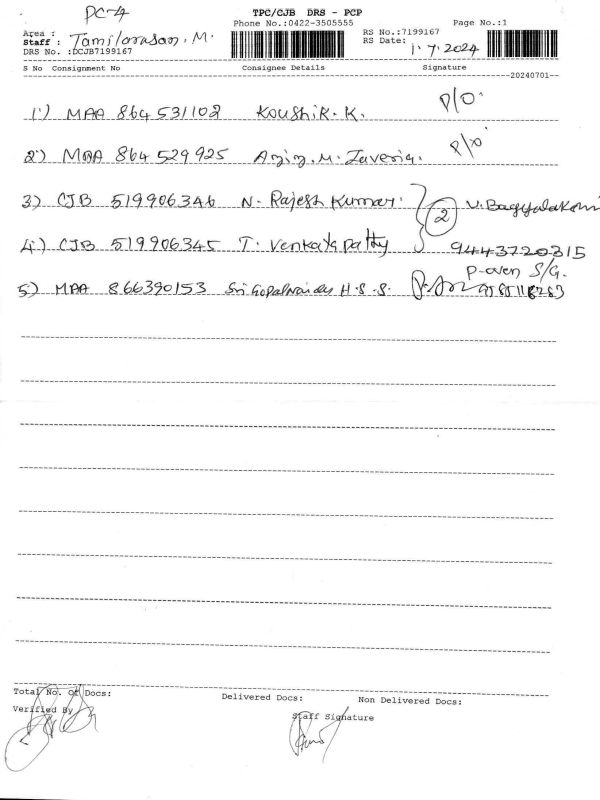 PC-4
TPC/CJB DRS - PCP
Phone No.:0422-3505555
Page No.:1
Area :
Staff : Tamilarasan. M.
DRS No. :DCJB7199167
RS No.:7199167
RS Date: 1.7.2024
S No Consignment No Consignee Details Signature
20240701
1) MAA 864 531102 Koushik. K. P/O.
2) MAA 864 529925 Aziz. M. Javeria. P/O
3) CJB 519906346 N. Rajesh Kumar. } 2 V. Bagyalakshmi
4) CJB 519906345 T. Venkatapathy 9443720315
P-oven S/G.
5) MAA 866390153 Sri Gopalnaidu H.S.S.
Total No. Of Docs: Delivered Docs: Non Delivered Docs:
Verified By
Staff Signature